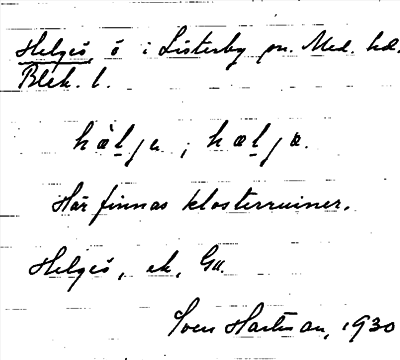 Helgeö ö i Listerby sn. Med. hd.
Blek. l.
hæljɛ, hæljæ.
Här finnas klosterruiner.
Helgeö, ek, Ga.
Sven Hartman, 1930